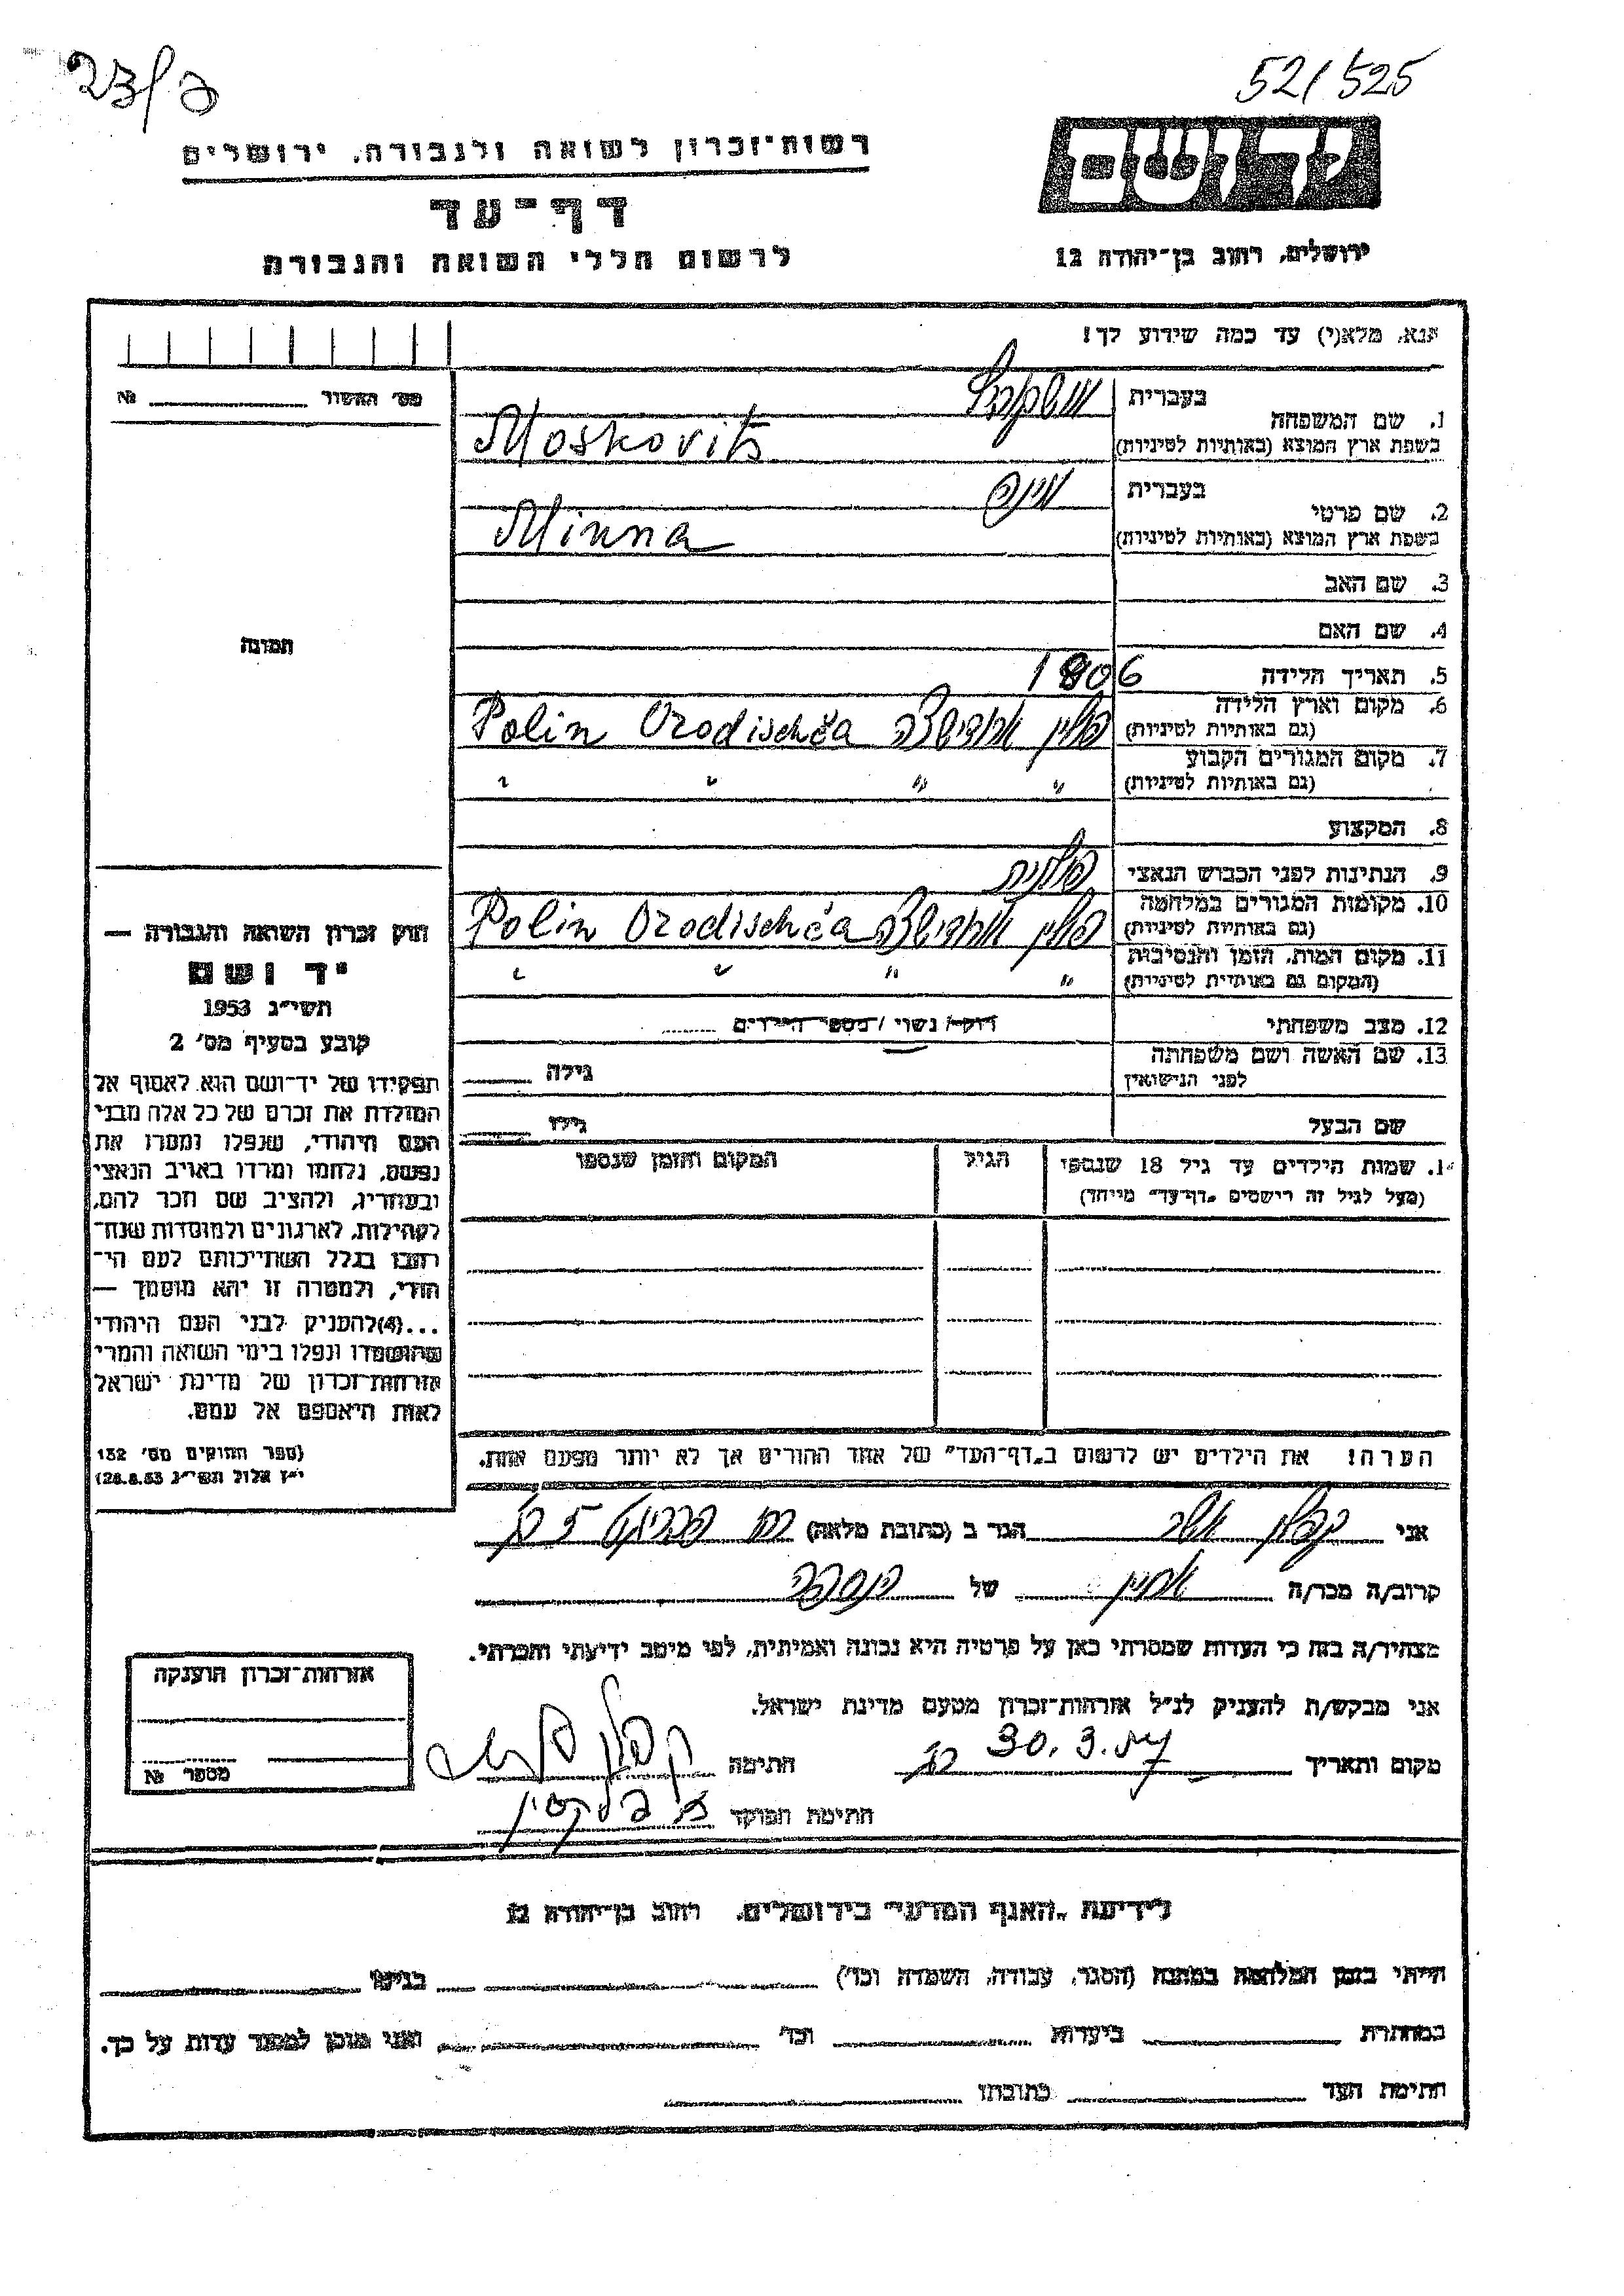 52/525
23/
רשות־זכרון לשואה ולגבורה, ירושלים
דף־עד
לרשום חללי השואה והגבורה
ידושם
ירושלים, רחוב בן־יהודה 12
אנא, מלא(י) עד כמה שידוע לך!
מס׳ האשור № 
1. שם המשפחה
בעברית מושקוביץ
בשפת ארץ המוצא (באותיות לטיניות) Moskovits
2. שם פרטי
בעברית מינה
בשפת ארץ המוצא (באותיות לטיניות) Minna
3. שם האב
4. שם האם
תמונה
5. תאריך הלידה 1906
6. מקום וארץ הלידה
(גם באותיות לטיניות) פולין Polin Orodischća
7. מקום המגורים הקבוע
(גם באותיות לטיניות) " " " "
8. המקצוע
9. הנתינות לפני הכבוש הנאצי פולנית
10. מקומות המגורים במלחמה
(גם באותיות לטיניות) פולין Polin Orodischća
11. מקום המות, הזמן והנסיבות
(המקום גם באותיות לטיניות) " " " "
12. מצב משפחתי רוק/ נשוי / מספר הילדים
13. שם האשה ושם משפחתה
לפני הנישואין גילה
שם הבעל גילו
1. שמות הילדים עד גיל 18 שנספו
(מעל לגיל זה רושמים „דף־עד״ מייחד)
הגיל
המקום והזמן שנספו
חוק זכרון השואה והגבורה —
יד ושם
תשי״ג 1953
קובע בסעיף מס׳ 2
תפקידו של יד־ושם הוא לאסוף אל
המולדת את זכרם של כל אלה מבני
העם היהודי, שנפלו ומסרו את
נפשם, נלחמו ומרדו באויב הנאצי
ובעוזריו, ולהציב שם וזכר להם,
לקהילות, לארגונים ולמוסדות שנח־
רבו בגלל השתייכותם לעם הי־
הודי, ולמטרה זו יהא מוסמך —
...(4)להעניק לבני העם היהודי
שהושמדו ונפלו בימי השואה והמרי
אזרחות־זכרון של מדינת ישראל
לאות היאספם אל עמם.
(ספר החוקים מס׳ 132
י״ז אלול תשי״ג 28.8.53)
הערה! את הילדים יש לרשום ב„דף־העד״ של אחד ההורים אך לא יותר מפעם אחת.
אני קפלן הגר ב (כתובת מלאה) 5
קרוב/ה מכר/ה של
מצהיר/ה בזה כי העדות שמסרתי כאן על פרטיה היא נכונה ואמיתית, לפי מיטב ידיעתי והכרתי.
אני מבקש/ת להעניק לנ״ל אזרחות־זכרון מטעם מדינת ישראל.
מקום ותאריך 30.3.57 חתימה קפלן
חתימת הפוקד
אזרחות־זכרון הוענקה
מספר №
לידיעת „האגף המדעי״ בירושלים, רחוב בן־יהודה 12
הייתי בזמן המלחמה במחנה (הסגר, עבודה, השמדה וכד׳) בגיטו
במחתרת ביערות וכד׳ ואני מוכן למסור עדות על כך.
חתימת העד כתובתו